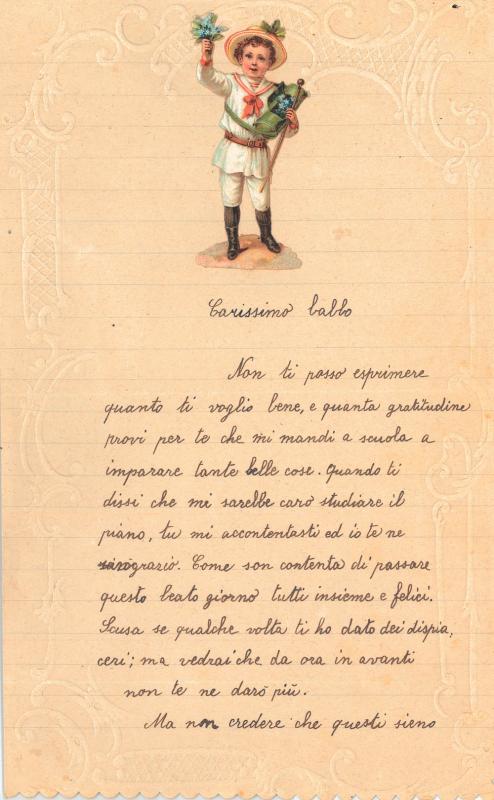 Carissimo babbo
Non ti posso esprimere
quanto ti voglio bene, e quanta gratitudine
provi per te che mi mandi a scuola a
imparare tante belle cose. Quando ti
dissi che mi sarebbe caro studiare il
piano, tu mi accontentasti ed io te ne
ringrazio. Come son contenta di passare
questo beato giorno tutti insieme e felici.
Scusa se qualche volta ti ho dato dei dispia,
ceri; ma vedrai che da ora in avanti
non te ne darò più.
Ma non credere che questi sieno